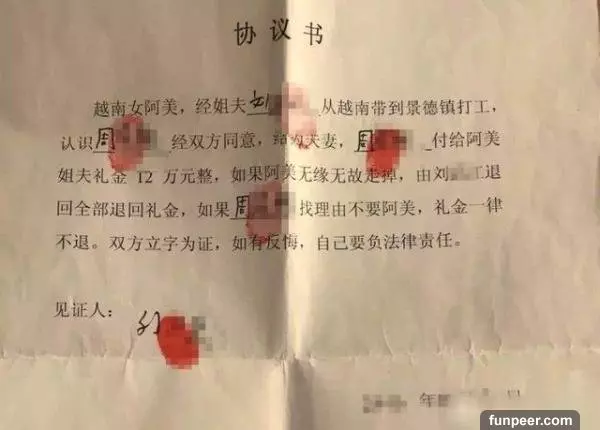 协议书
越南女阿美，经姐夫刘 从越南带到景德镇打工，
认识周 经双方同意，结为夫妻，周 付给阿美
姐夫礼金 12 万元整，如果阿美无缘无故走掉，由刘 江退
回全部退回礼金，如果周 找理由不要阿美，礼金一律
不退。双方立字为证，如有反悔，自己要负法律责任。
见证人：
年
funpeer.com